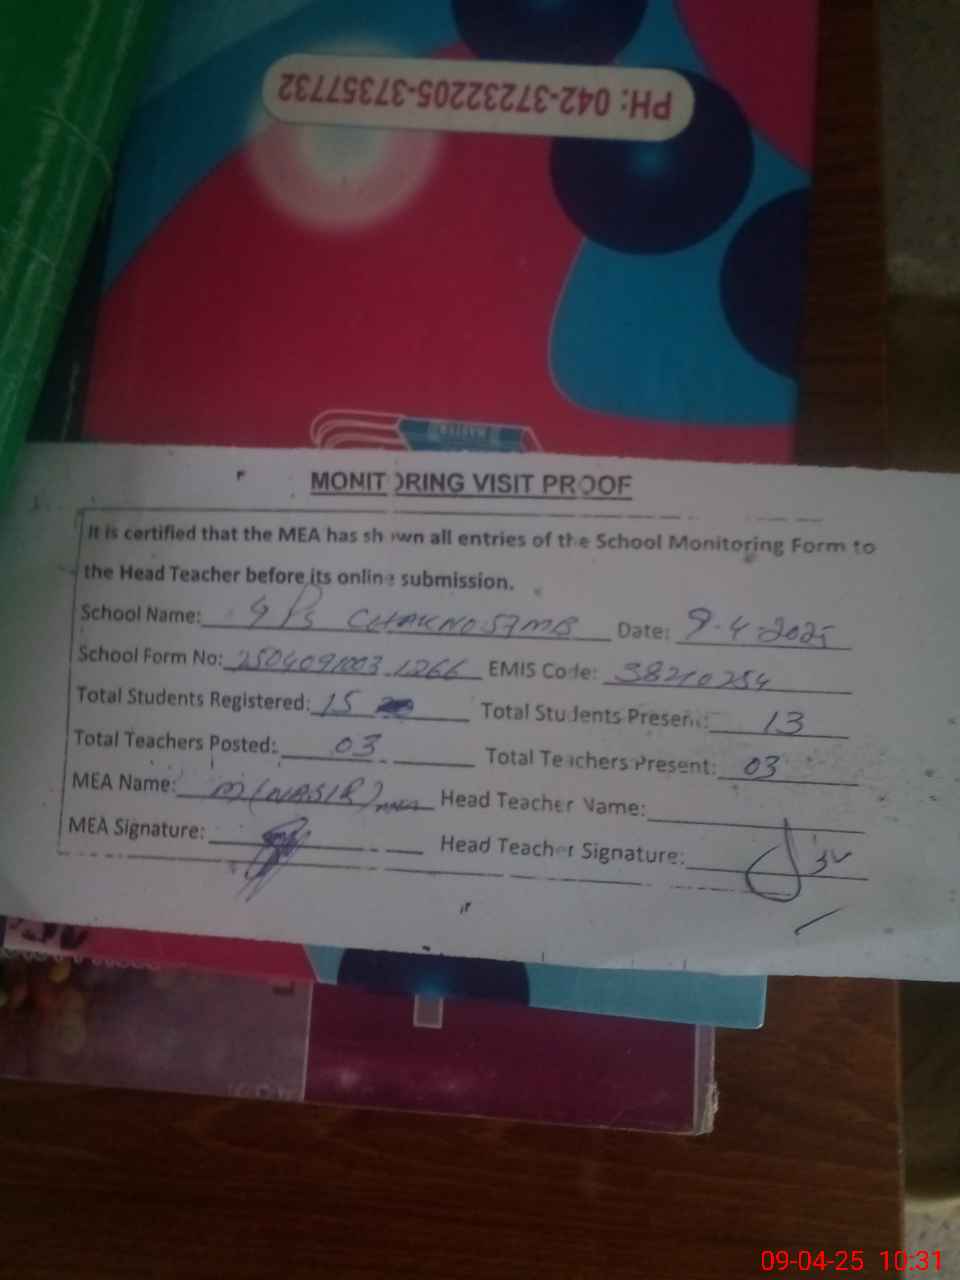 PH: 042-37232205-37357732
MONITORING VISIT PROOF
It is certified that the MEA has shown all entries of the School Monitoring Form to
the Head Teacher before its online submission.
School Name: GPS CHAKNO 57MB Date: 9-4-2025
School Form No: 2504091003 1266 EMIS Code: 38210254
Total Students Registered: 15 Total Students Present: 13
Total Teachers Posted: 03 Total Teachers Present: 03
MEA Name: M (NASIR) Head Teacher Name:
MEA Signature: Head Teacher Signature:
09-04-25 10:31